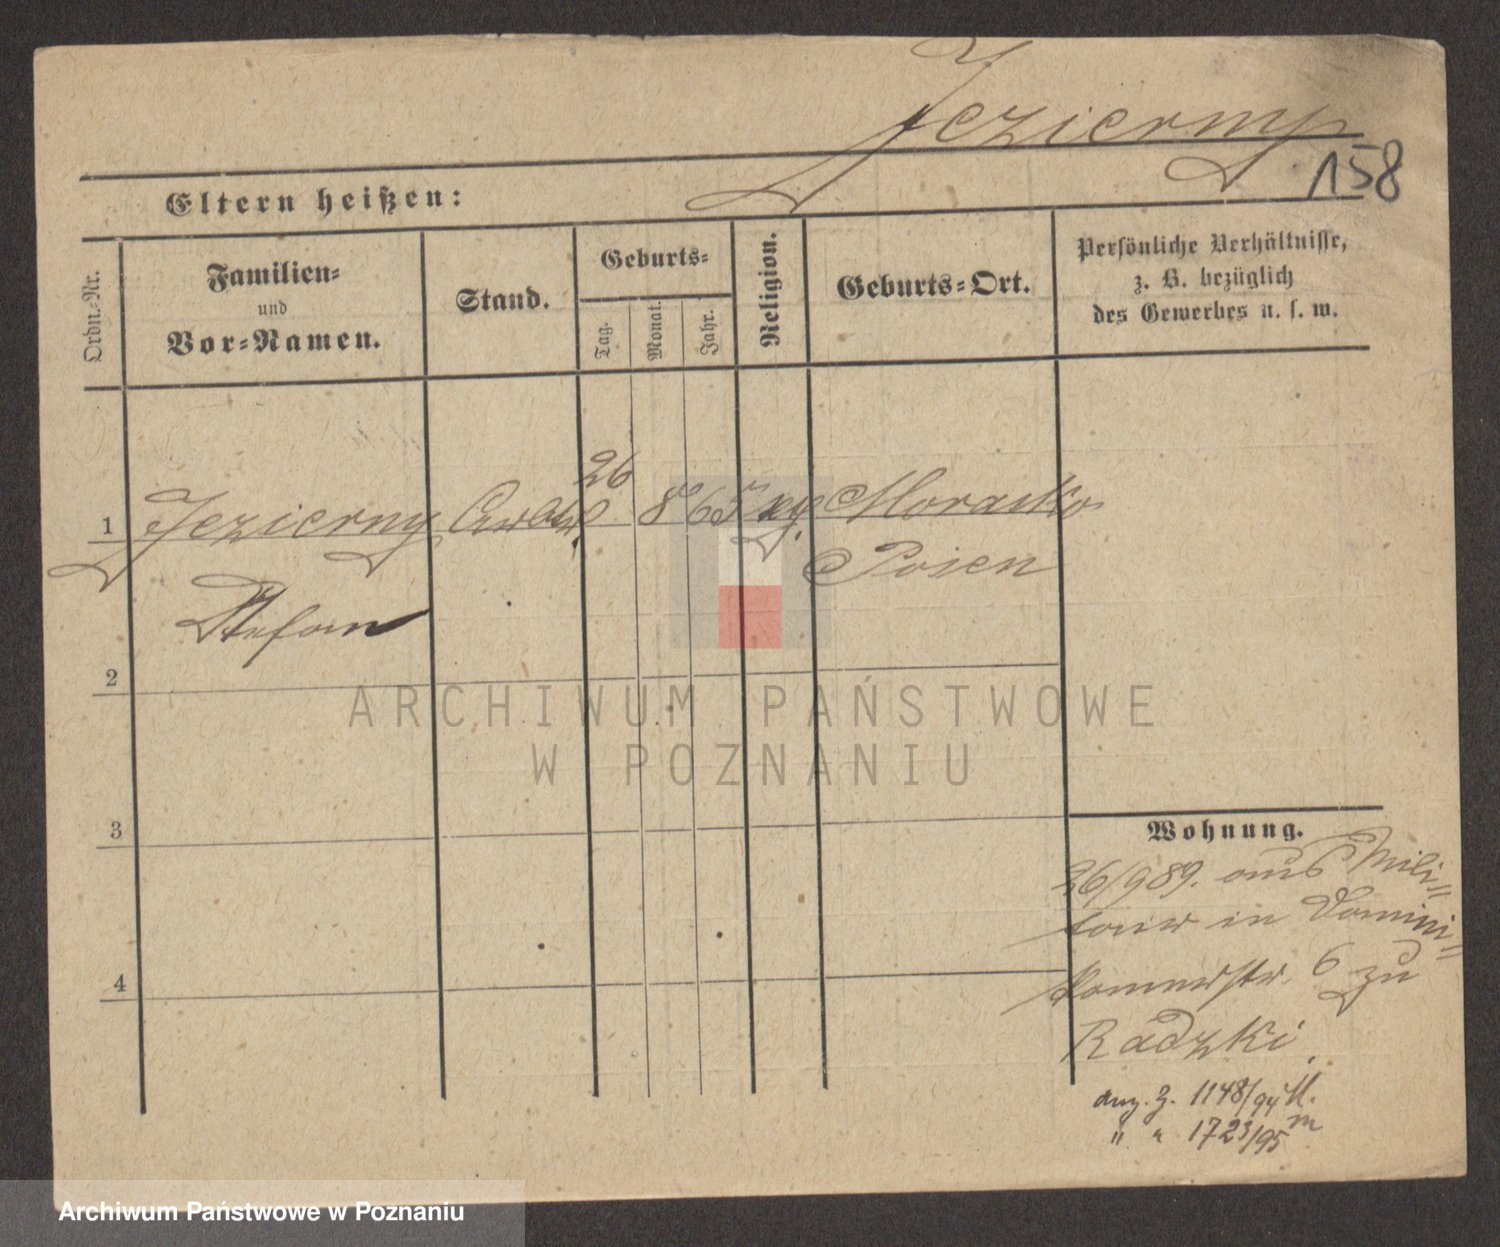 Jezierny
158
Eltern heißen:
Ordn.-Nr.
Familien-
und
Vor-Namen.
Stand.
Geburts-
Tag.
Monat.
Jahr.
Religion.
Geburts-Ort.
Persönliche Verhältnisse,
z. B. bezüglich
des Gewerbes u. s. w.
26
1 Jezierny 8 65 Morasko
Posen
Stefan
2
3
4
Wohnung.
26/9 89. aus Mili=
tair in Domini=
kanerstr. 6 zu
Radzki.
anz. Z. 1148/94
" " 1723/95
ARCHIWUM PAŃSTWOWE
W POZNANIU
Archiwum Państwowe w Poznaniu